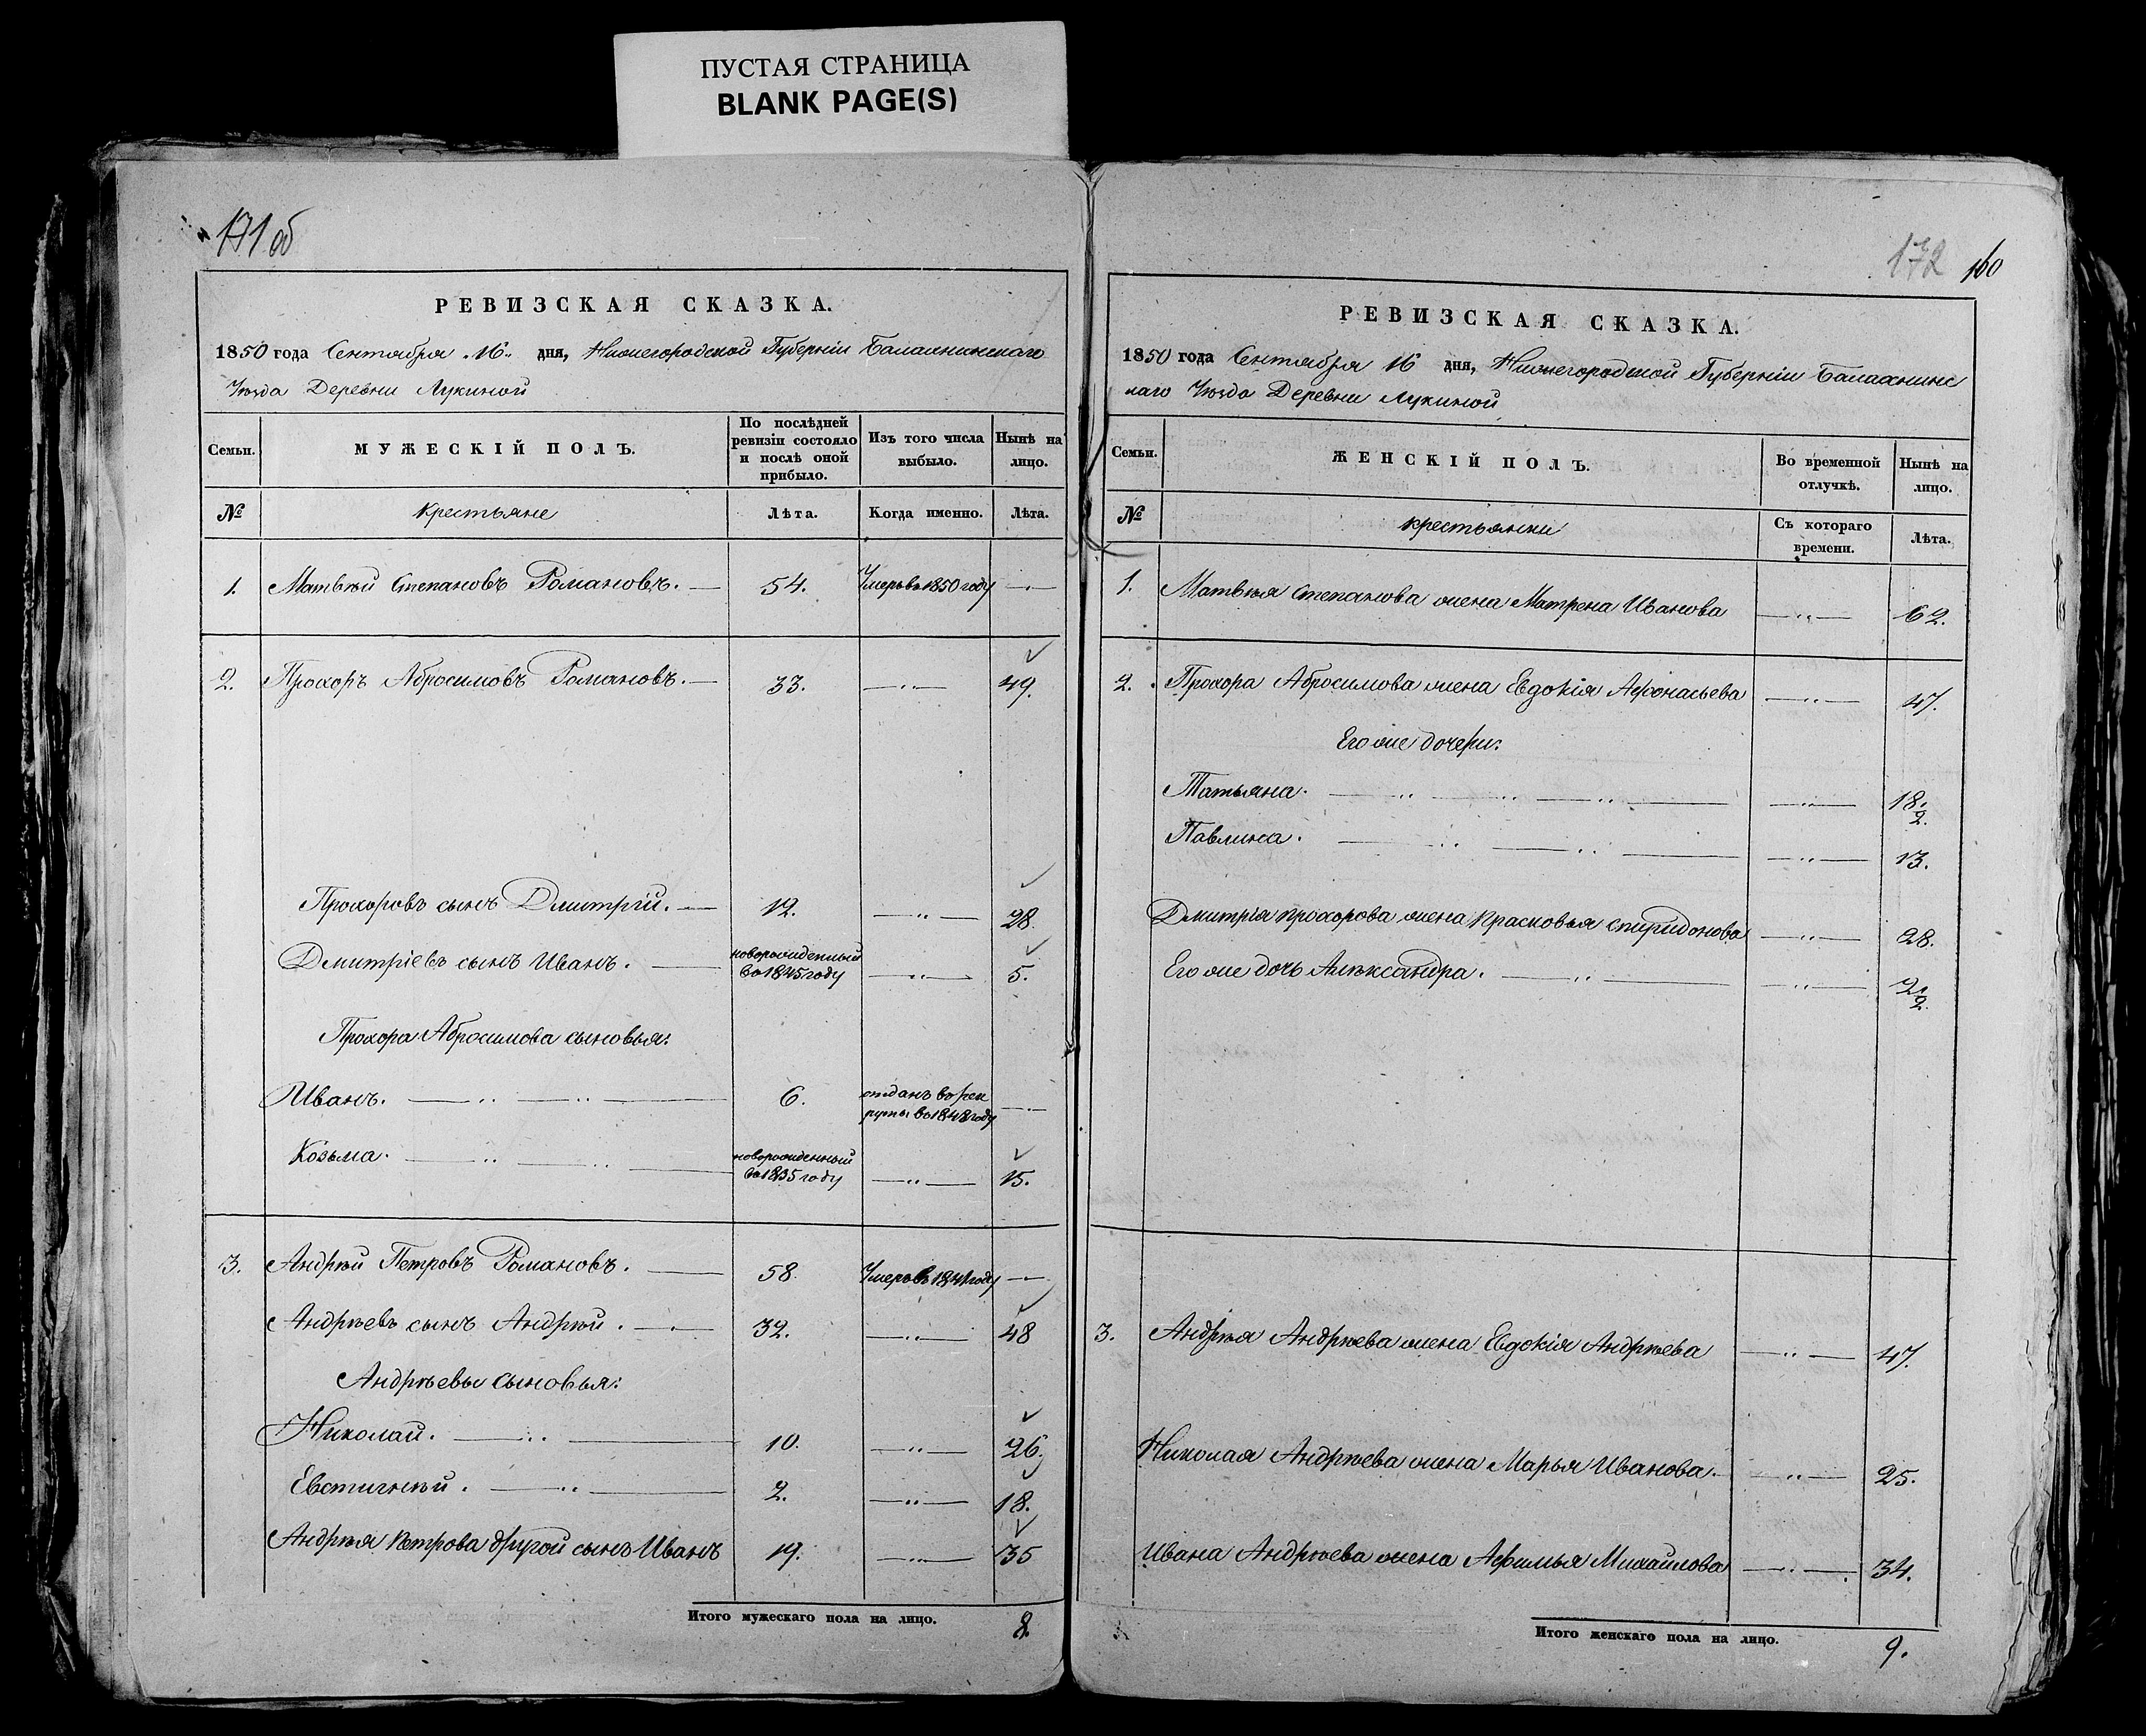 ПУСТАЯ СТРАНИЦА
BLANK PAGE(S)
171 об
РЕВИЗСКАЯ СКАЗКА.
1850 года Сентября „16„ дня, Нижегородской Губерніи Балахнинскаго
Уѣзда Деревни Лукиной
Семьи. МУЖЕСКІЙ ПОЛЪ. По послѣдней ревизіи состояло и послѣ оной прибыло. Изъ того числа выбыло. Нынѣ на лицо.
№ Крестьяне Лѣта. Когда именно. Лѣта.
1. Матвѣй Степановъ Романовъ. — 54. Умеръ въ 1850 году —
2. Прохоръ Абросимовъ Романовъ. — 33. — „ — 49.
Прохоровъ сынъ Дмитрій. — 12. — „ — 28.
Дмитріевъ сынъ Иванъ. — новорожденный въ 1845 году — „ — 5.
Прохора Абросимова сыновья:
Иванъ. — „ — „ — 6. отданъ во рек руты въ 1848 году —
Козьма. — „ — „ — новорожденный въ 1835 году — „ — 15.
3. Андрѣй Петровъ Романовъ. — 58. Умеръ въ 1841 году —
Андрѣевъ сынъ Андрѣй. — 32. — „ — 48
Андрѣевы сыновья:
Николай. — „ — 10. — „ — 26.
Евстигнѣй. — „ — 2. — „ — 18.
Андрѣя Петрова другой сынъ Иванъ 19. — „ — 35
Итого мужескаго пола на лицо. 8.
172 160
РЕВИЗСКАЯ СКАЗКА.
1850 года Сентября 16 дня, Нижегородской Губерніи Балахнинс
каго Уѣзда Деревни Лукиной
Семьи. ЖЕНСКІЙ ПОЛЪ. Во временной отлучкѣ. Нынѣ на лицо.
№ крестьянки Съ котораго времени. Лѣта.
1. Матвѣя Степанова жена Матрена Иванова — „ — 62.
2. Прохора Абросимова жена Евдокія Афонасьева — „ — 47.
Его же дочери:
Татьяна. — „ — „ — „ — — „ — 18 1/2.
Павлина. — „ — „ — — „ — 13.
Дмитрія Прохорова жена Прасковья Спиридонова — „ — 28.
Его же дочь Алѣксандра. — „ — — „ — 2 1/2.
3. Андрѣя Андрѣева жена Евдокія Андрѣева — „ — 47.
Николая Андрѣева жена Марья Иванова. — „ — 25.
Ивана Андрѣева жена Афимья Михаилова — „ — 34.
Итого женскаго пола на лицо. 9.